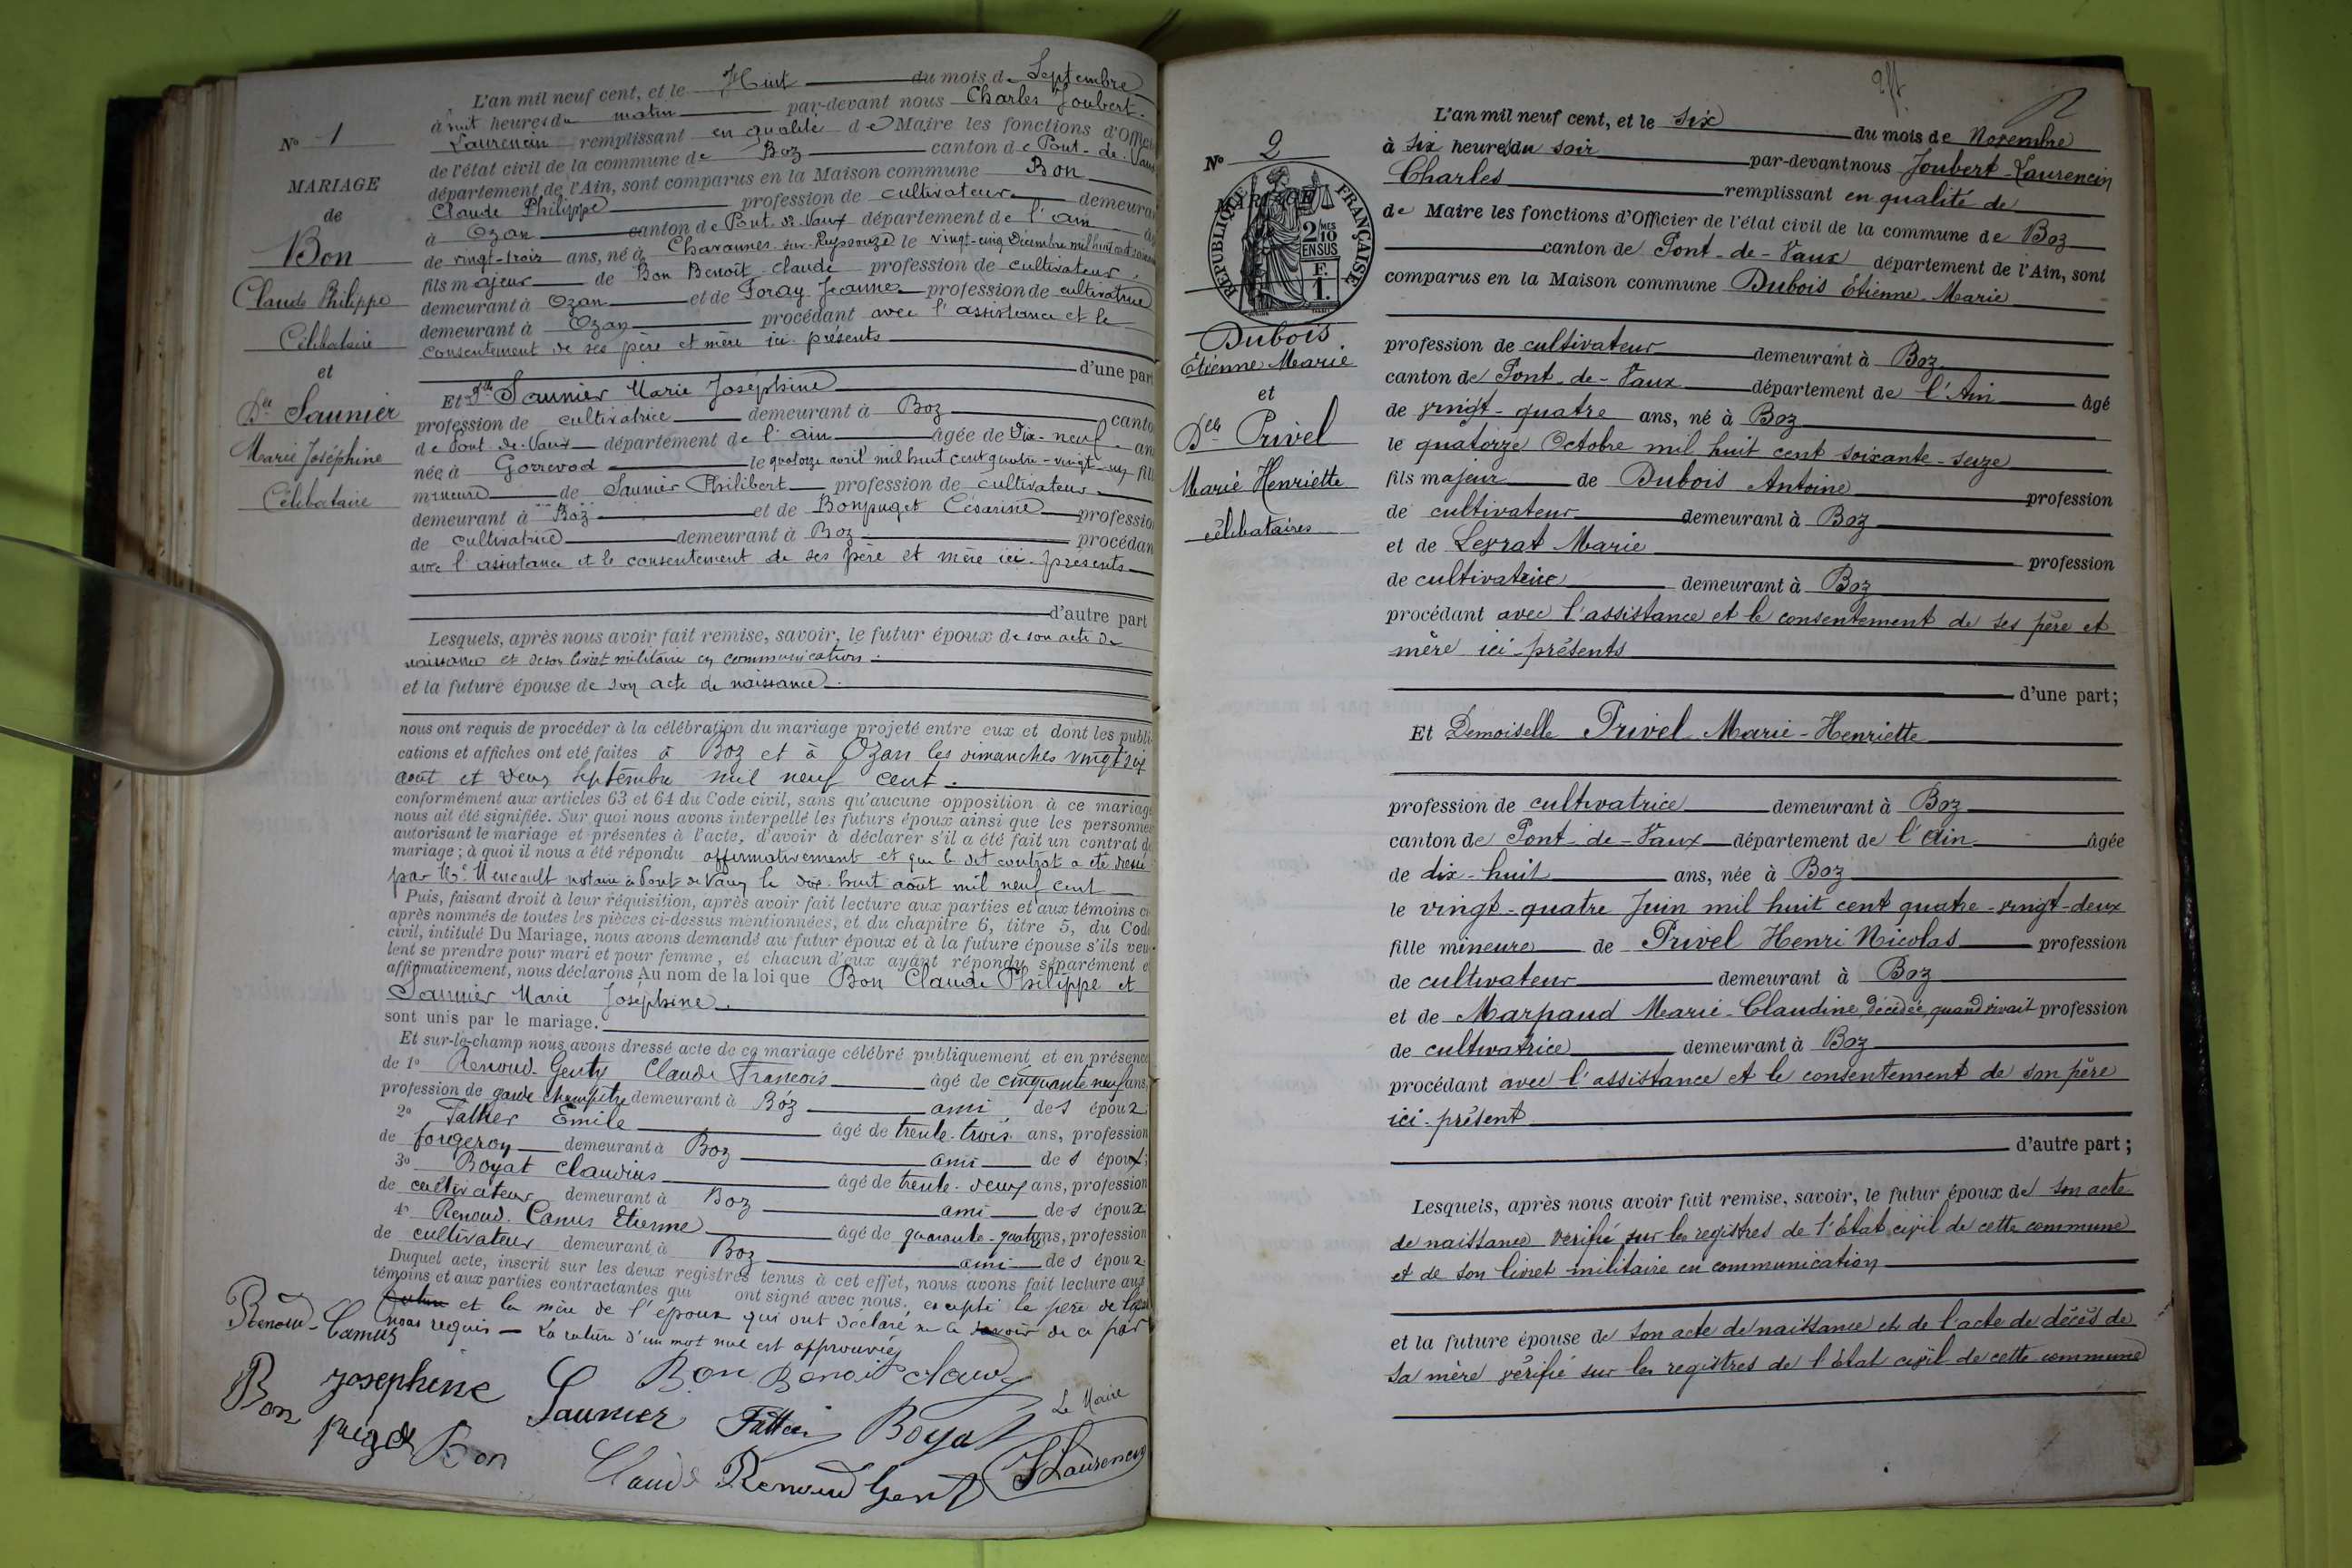 L'an mil neuf cent, et le Huit du mois de Septembre
à huit heures du matin par-devant nous Charles Joubert-
Laurencin remplissant en qualité de Maire les fonctions d'Officier
de l'état civil de la commune de Boz canton de Pont-de-Vaux
département de l'Ain, sont comparus en la Maison commune Bon
Claude Philippe profession de cultivateur demeurant
à Ozan canton de Pont-de-Vaux département de l'ain
de vingt-trois ans, né à Chavannes-sur-Reyssouze le vingt-cinq Décembre mil huit cent
fils majeur de Bon Benoît Claude profession de cultivateur,
demeurant à Ozan et de Foray Jeanne profession de cultivatrice
demeurant à Ozan procédant avec l'assistance et le
consentement de ses père et mère ici présents
d'une part
Et Dlle Saunier Marie Joséphine
profession de cultivatrice demeurant à Boz canto
de Pont-de-Vaux département de l'ain âgée de Dix-neuf an
née à Gorrevod le quatorze avril mil huit cent quatre-vingt-un fill
mineure de Saunier Philibert profession de cultivateur
demeurant à Boz et de Bonpuget Césarine profession
de cultivatrice demeurant à Boz procédan
avec l'assistance et le consentement de ses père et mère ici présents
d'autre part
Lesquels, après nous avoir fait remise, savoir, le futur époux de son acte de
naissance et de son livret militaire en communication.
et la future épouse de son acte de naissance.
nous ont requis de procéder à la célébration du mariage projeté entre eux et dont les publi-
cations et affiches ont été faites à Boz et à Ozan les dimanches vingt six
août et deux septembre mil neuf cent.
conformément aux articles 63 et 64 du Code civil, sans qu'aucune opposition à ce mariage
nous ait été signifiée. Sur quoi nous avons interpellé les futurs époux ainsi que les personnes
autorisant le mariage et présentes à l'acte, d'avoir à déclarer s'il a été fait un contrat de
mariage; à quoi il nous a été répondu affirmativement et que le dit contrat a été dressé
par Me notaire à Pont de Vaux le dix-huit août mil neuf cent
Puis, faisant droit à leur réquisition, après avoir fait lecture aux parties et aux témoins ci-
après nommés de toutes les pièces ci-dessus mentionnées, et du chapitre 6, titre 5, du Code
civil, intitulé Du Mariage, nous avons demandé au futur époux et à la future épouse s'ils veu-
lent se prendre pour mari et pour femme, et chacun d'eux ayant répondu séparément et
affirmativement, nous déclarons Au nom de la loi que Bon Claude Philippe et
Saunier Marie Joséphine.
sont unis par le mariage.
Et sur-le-champ nous avons dressé acte de ce mariage célébré publiquement et en présence
de 1º Renoud-Gentis Claude François âgé de cinquante neuf ans,
profession de garde champêtre demeurant à Boz ami des époux
2º Fattier Emile âgé de trente-trois ans, profession
de forgeron demeurant à Boz ami des époux;
3º Boyat Claudius âgé de trente-deux ans, profession
de cultivateur demeurant à Boz ami des époux
4º Renoud-Camus Etienne âgé de quarante-quatre ans, profession
de cultivateur demeurant à Boz ami des époux
Duquel acte, inscrit sur les deux registres tenus à cet effet, nous avons fait lecture aux
témoins et aux parties contractantes qui ont signé avec nous. excepté le père de
et la mère de l'époux qui ont déclaré ne le savoir de ce par
nous requis – La rature d'un mot nul est approuvée
Renoud-Camus
Josephine Saunier Bon Benoit claude
Bon puget Bon Fattier Boyat Le Maire
Claude Renoud Gent JLaurencin
Nº 1
MARIAGE
de
Bon
Claude Philippe
Célibataire
et
Dlle Saunier
Marie Joséphine
Célibataire
Nº 2
MARIAGE
RÉPUBLIQUE FRANÇAISE
2/10 MES
EN SUS
F.
1.
Dubois
Etienne Marie
et
Dlle Privel
Marie Henriette
célibataires
L'an mil neuf cent, et le six du mois de Novembre
à six heures du soir par-devant nous Joubert-Laurencin
Charles remplissant en qualité de
de Maire les fonctions d'Officier de l'état civil de la commune de Boz
canton de Pont-de-Vaux département de l'Ain, sont
comparus en la Maison commune Dubois Etienne Marie
profession de cultivateur demeurant à Boz
canton de Pont-de-Vaux département de l'Ain âgé
de vingt-quatre ans, né à Boz
le quatorze Octobre mil huit cent soixante-seize
fils majeur de Dubois Antoine profession
de cultivateur demeurant à Boz
et de Leyrat Marie profession
de cultivatrice demeurant à Boz
procédant avec l'assistance et le consentement de ses père et
mère ici présents
d'une part;
Et Demoiselle Privel Marie-Henriette
profession de cultivatrice demeurant à Boz
canton de Pont-de-Vaux département de l'Ain âgée
de dix-huit ans, née à Boz
le vingt-quatre Juin mil huit cent quatre-vingt-deux
fille mineure de Privel Henri Nicolas profession
de cultivateur demeurant à Boz
et de Marpaud Marie-Claudine, décédée, quand vivait profession
de cultivatrice demeurant à Boz
procédant avec l'assistance et le consentement de son père
ici-présent
d'autre part;
Lesquels, après nous avoir fait remise, savoir, le futur époux de son acte
de naissance vérifié sur les registres de l'Etat civil de cette commune
et de son livret militaire en communication
et la future épouse de son acte de naissance et de l'acte de décès de
sa mère vérifié sur les registres de l'Etat civil de cette commune